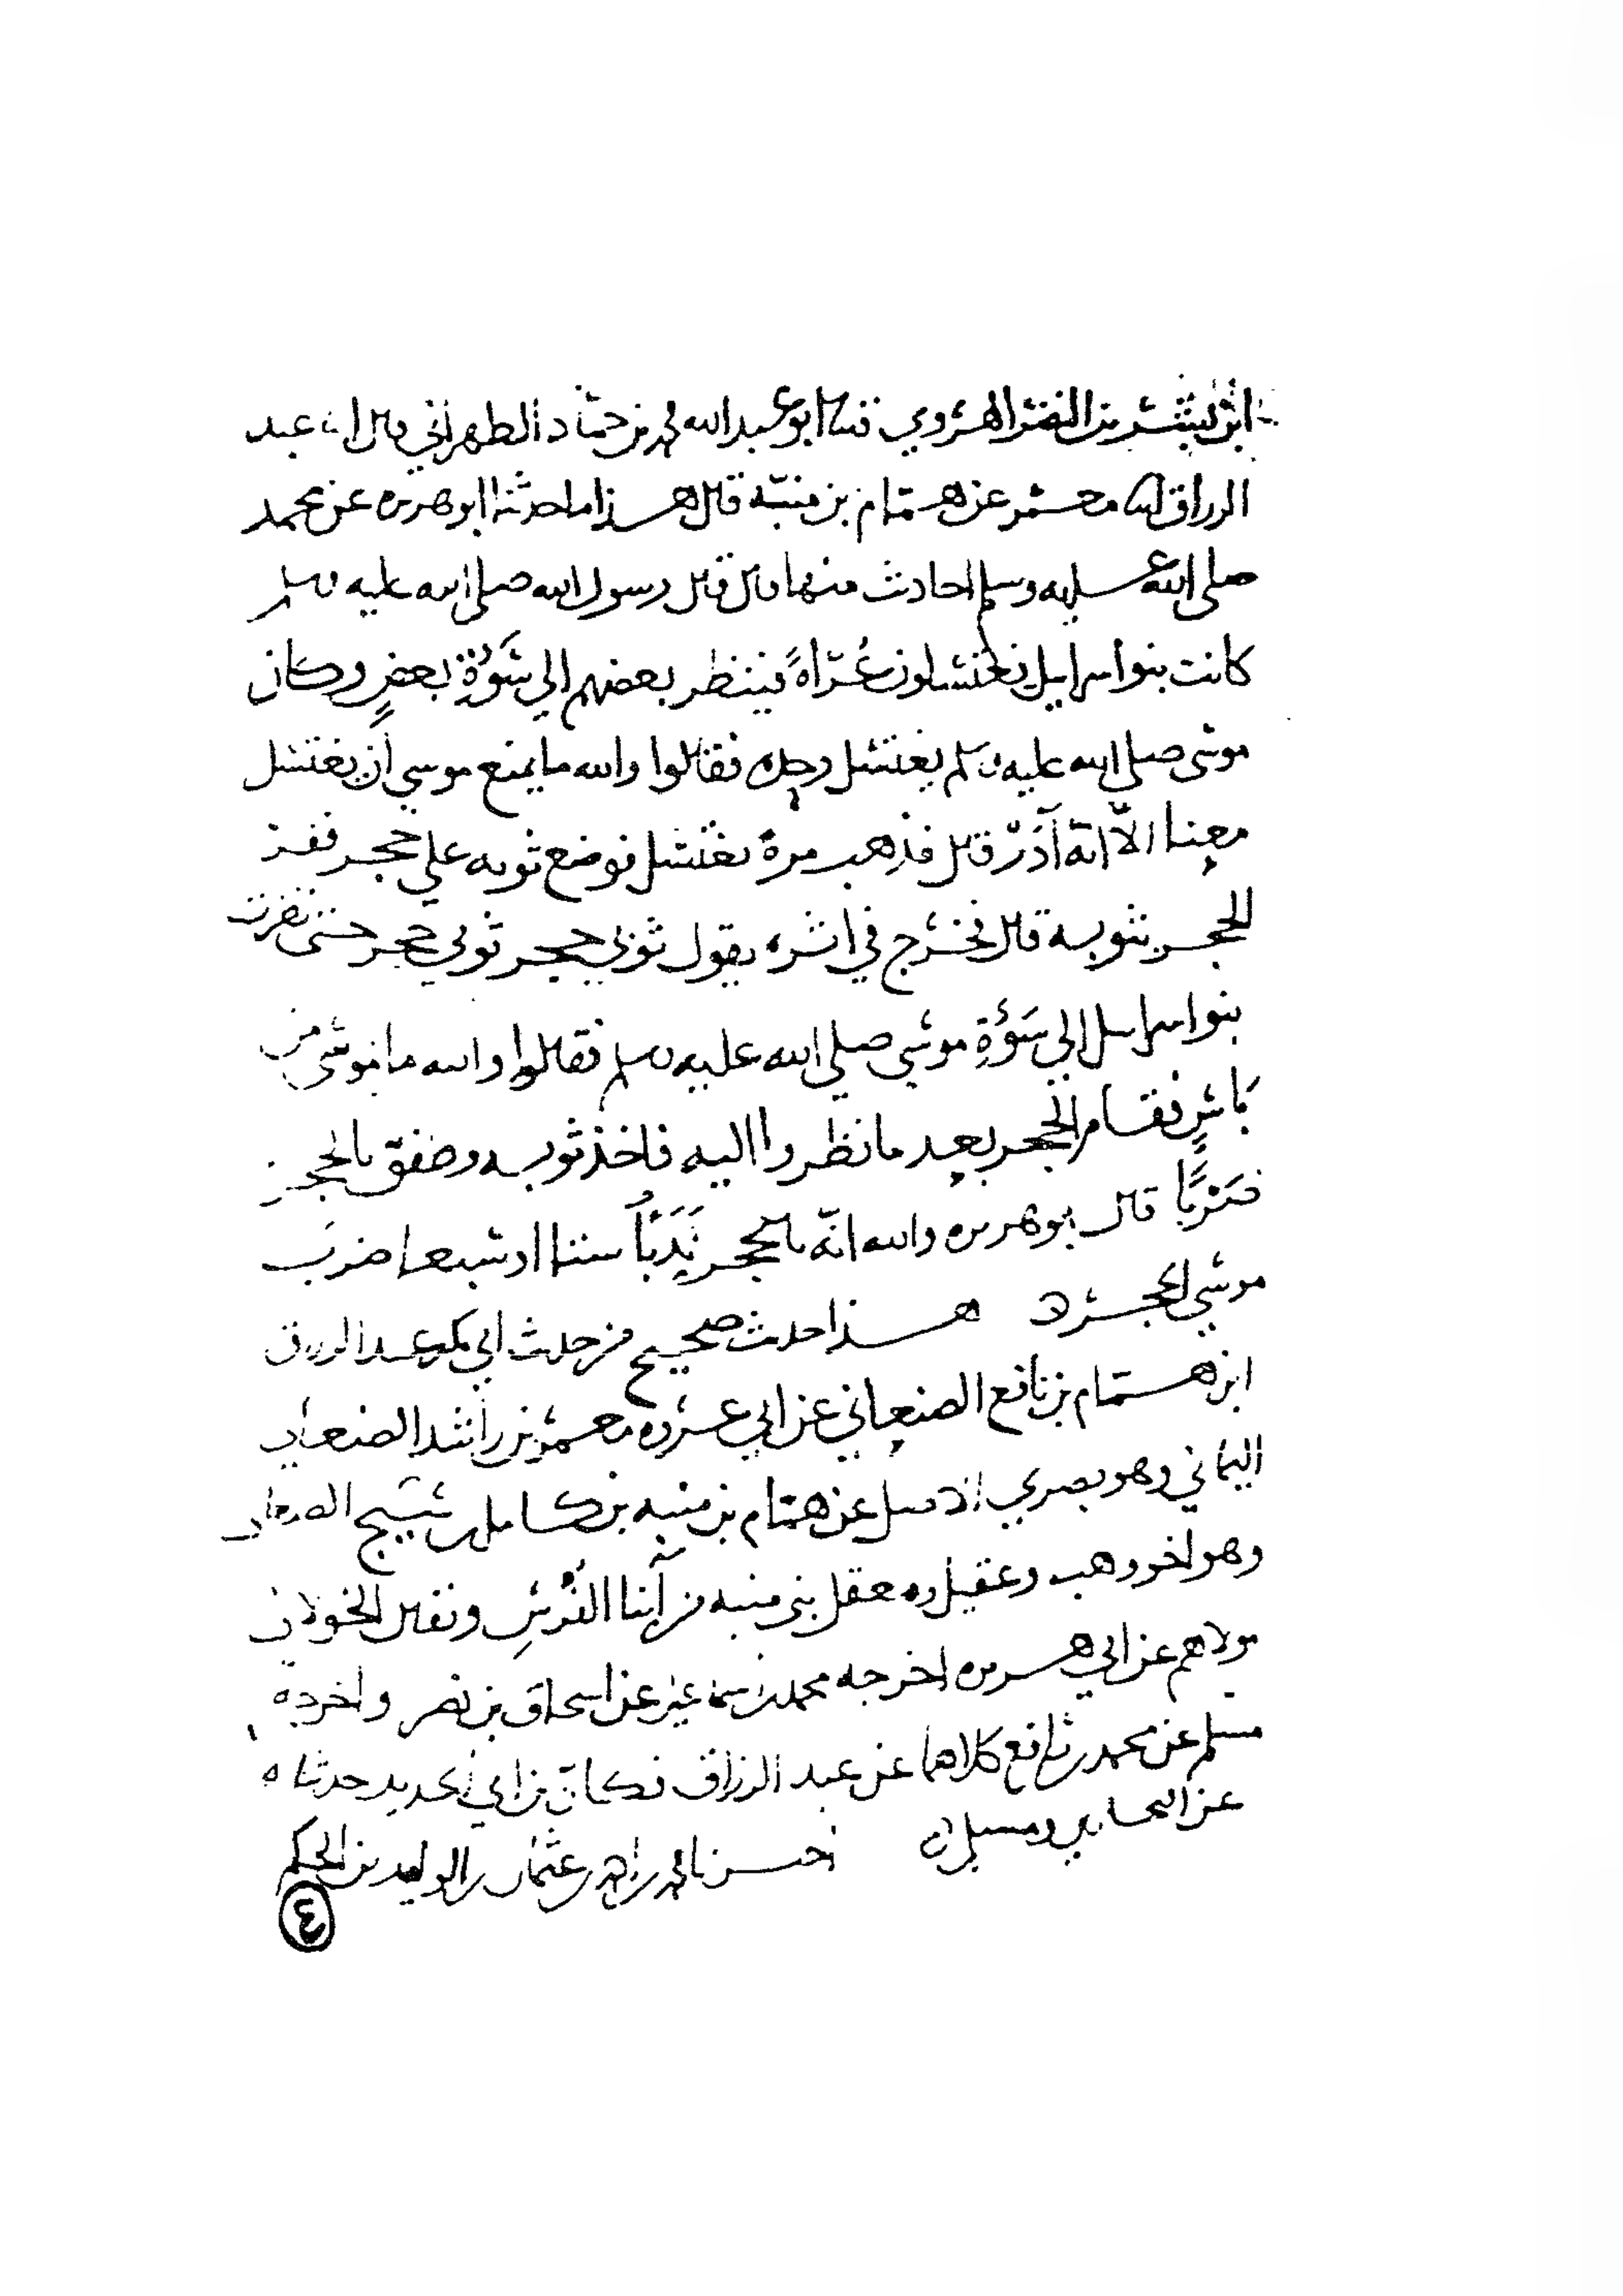 ابن بشر بن النضر الهروي قثنا ابو عبد الله محمد بن حماد الطهراني قال انا عبد
الرزاق انا معمر عن همام بن منبه قال هذا ما حدثنا ابو هريره عن محمد
صلى الله عليه وسلم احاديث منها قال قال رسول الله صلى الله عليه وسلم
كانت بنوا اسرايل يغتسلون عُرّاةً فينظر بعضهم الي سَوْءَةِ بعضٍ وكان
موسى صلى الله عليه وسلم يغتسل وحده فقالوا والله ما يمنع موسي أن يغتسل
معنا الّا انه آدَرْ قال فذهب مرةً يغتسل فوضع ثوبه علي حجر ففر
الحجر بثوبه قال فخرج في اثره يقول ثوبي حجر ثوبي حجر حتى نظرت
بنوا اسرايل إلي سَوْءَةِ موسي صلي الله عليه وسلم فقالوا والله ما بموسى من
بَاسٍ فقام الحجر بعد ما نظروا اليه فاخذ ثوبه وطفق بالحجر
ضَرْبًا قال ابو هريره والله انّه بالحجر نَدَبًا ستا او سبعا ضرب
موسي الحجر ه هذا حديث صحيح من حديث ابي بكر عبد الرزاق
ابن همام بن نافع الصنعاني عن ابي عروه معمر بن راشد الصنعاني
اليماني وهو بصري الاصل عن همام بن منبه بن كامل بن سَيج الصنعاني
وهو اخو وهب وعقيل ومعقل بني منبه من أبنا الفُرْسِ ويقال الخولاني
مولاهم عن ابي هريره اخرجه محمد بن اسماعيل عن اسحاق بن نصر واخرجه
مسلم عن محمد بن رافع كلاهما عن عبد الرزاق فكانّ بن ابي الحديد حدثناه
عن البخاري ومسلم ه اخبرنا محمد بن احمد بن عثمان بن الوليد بن الحكم
٤